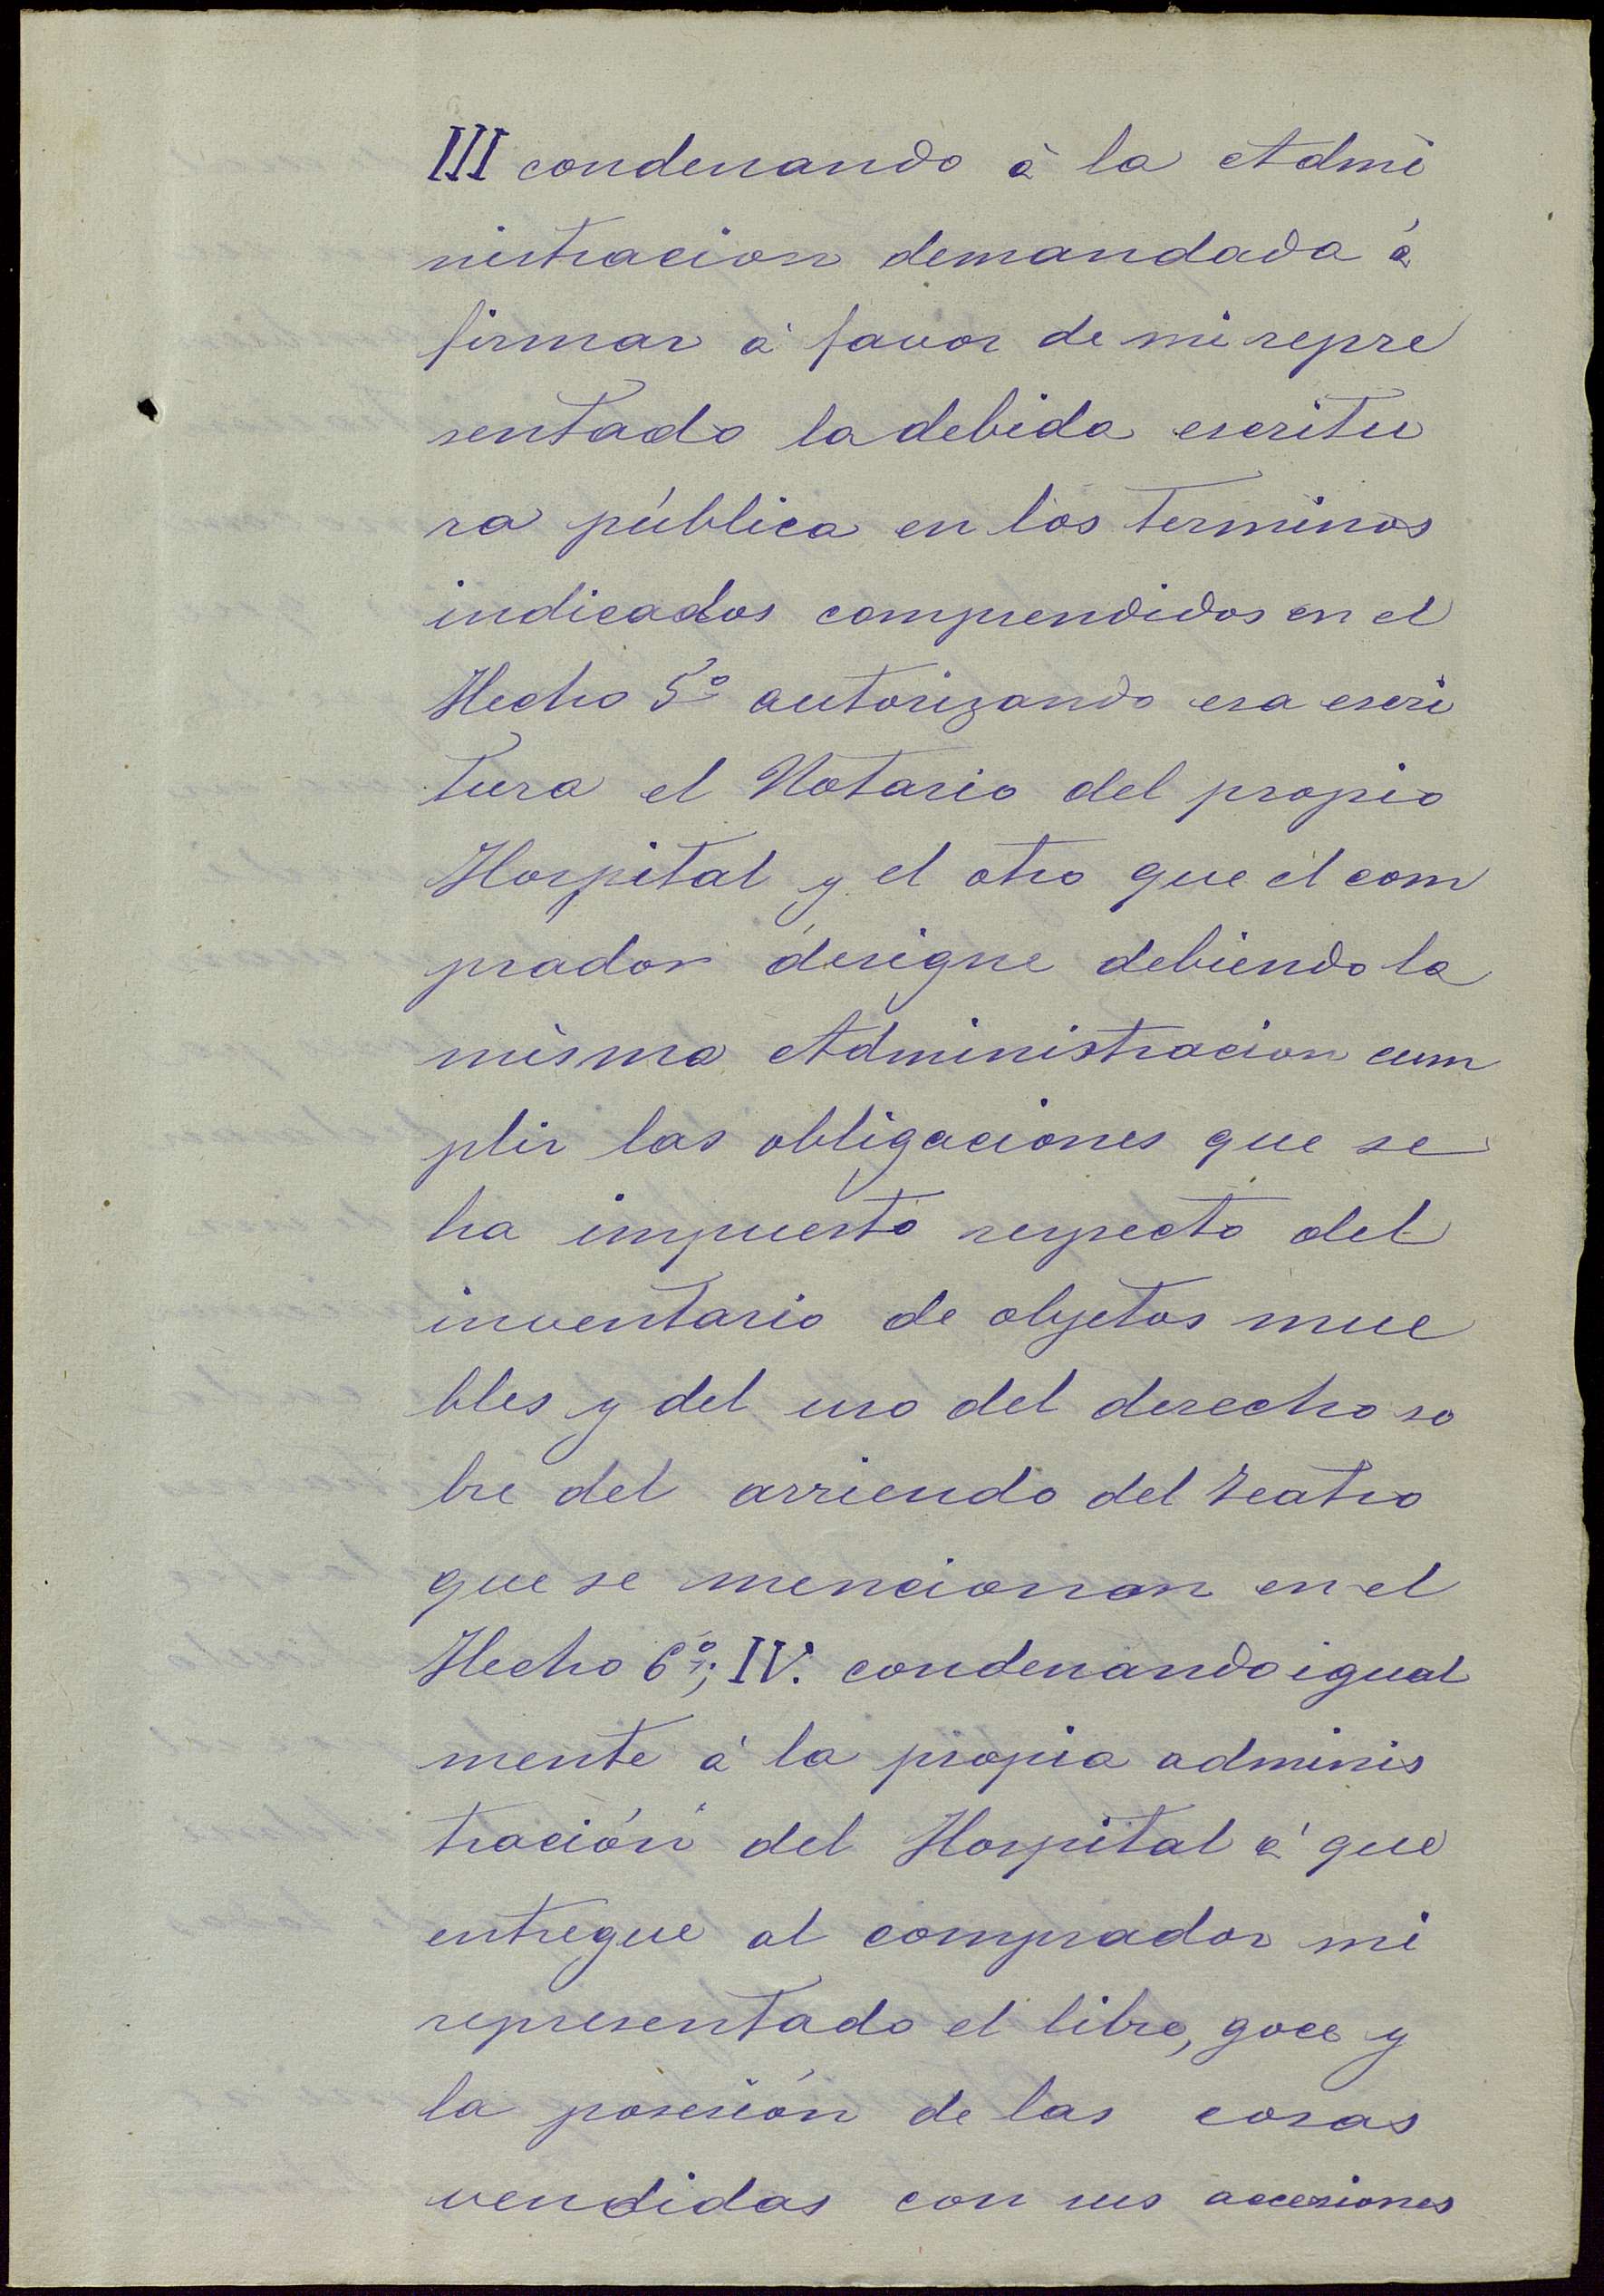 III condenando à la Admi
nistracion demandada á
firmar á favor de mi repre
sentado la debida escritu
ra pública en los terminos
indicados comprendidos en el
Hecho 5º autorizando esa escri
tura el Notario del propio
Hospital y el otro que el com
prador designe debiendo la
misma Administracion cum
plir las obligaciones que se
ha impuesto respecto del
inventario de objetos mue
bles y del uso del derecho so
bre del arriendo del teatro
que se mencionan en el
Hecho 6º; IV. condenando igual
mente á la propia adminis
tración del Hospital á que
entregue al comprador mi
representado el libre, goce y
la posesión de las cosas
vendidas con sus accesiones